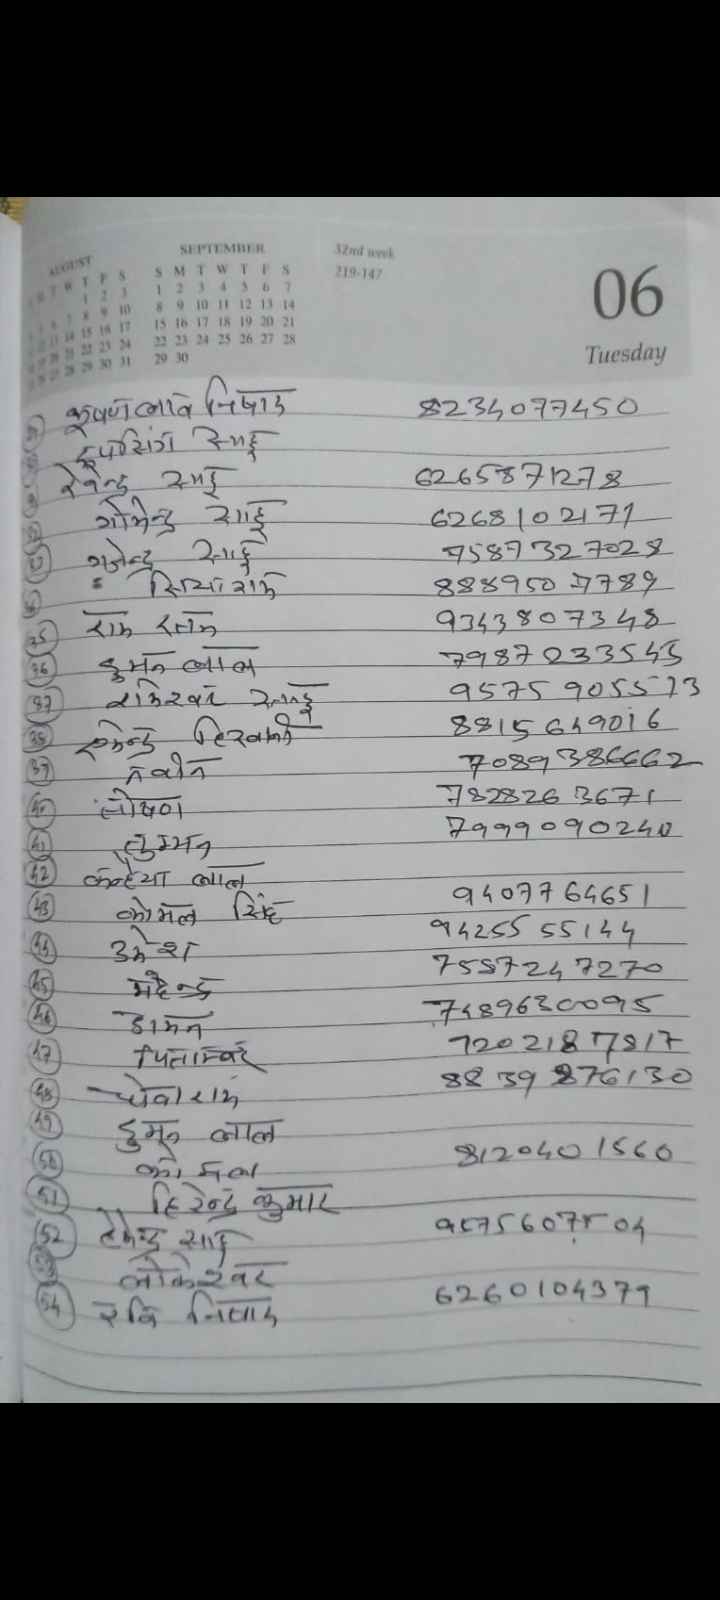 AUGUST
SEPTEMBER
32nd week
219-147
S M T W T F S
1 2 3 4 5 6 7
8 9 10 11 12 13 14
15 16 17 18 19 20 21
22 23 24 25 26 27 28
29 30
06
Tuesday
कृष्ण लाल निषाद 8234077450
साहू
साहू 6265871278
साहू 6268102171
गजेन्द्र साहू 7587327028
सियाराम 8889507789
35 राम रतन 9343807348
36 डुमन लाल 7987033545
37 साहू 9575905573
38 8815649016
39 नवीन 7089386662
40 7828263671
41 7999090240
42 कन्हैया लाल
43 कोमल सिंह 9407764651
44 उमेश 9425555144
45 महेन्द्र 7587247270
46 डामन 7489630095
47 पिताम्बर 7202187817
48 8839876130
49 डुमन लाल
50 कोमल 8120401560
51 हिरेन्द्र कुमार
52 साहू
53 लोकेश्वर
54 रवि निषाद 6260104379